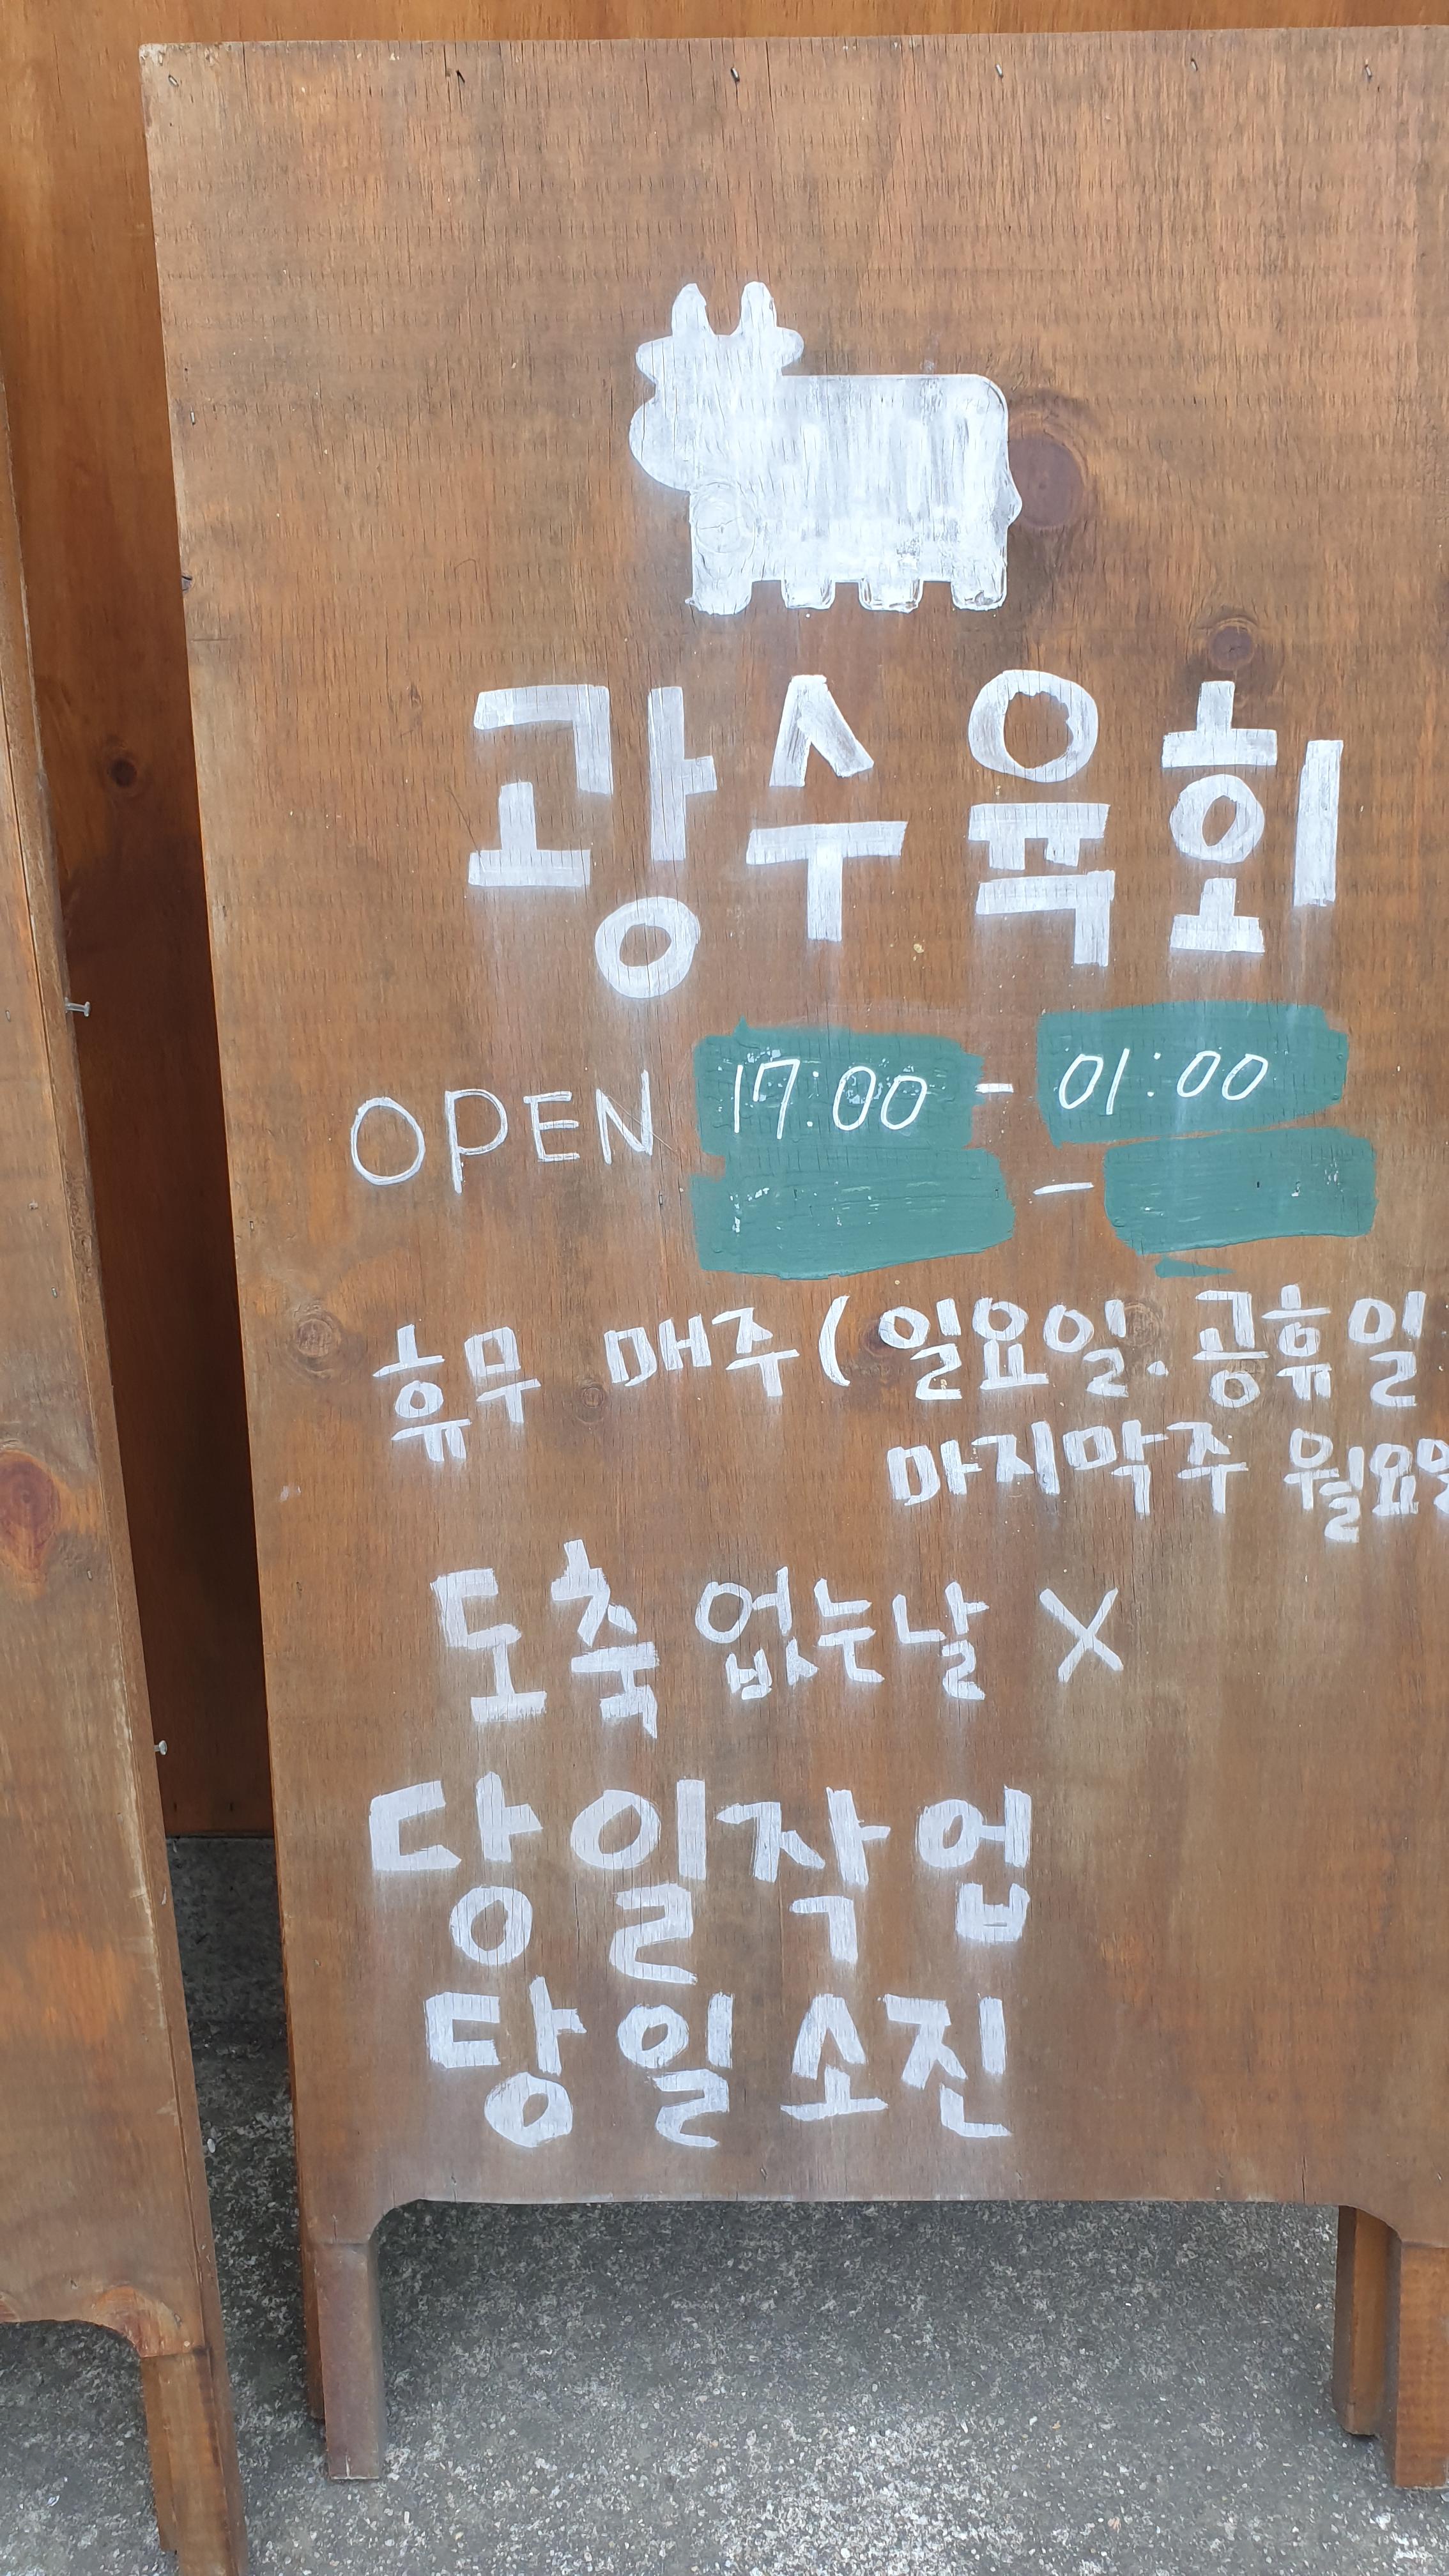 광수육회
OPEN 17:00 - 01:00
-
휴무 매주 (일요일. 공휴일
마지막주
도축 없는날 X
당일작업
당일소진